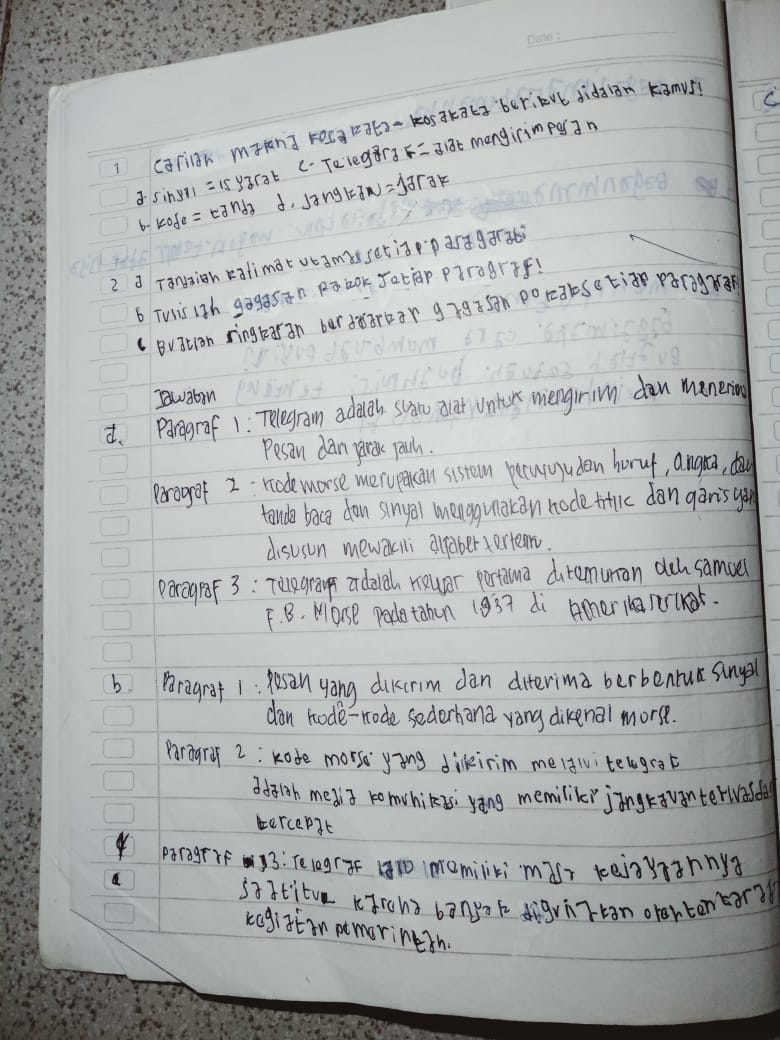 Date :
1 Carilah makna kosakata-kosakata berikut didalam kamus!
a. Sinyal = isyarat c. Telegarak = alat mengirim pesan
b. kode = tanda d. jangkan = jarak
2 a Tandaiah kalimat utama setiap paragarab
b Tulislah gagasan pokok setiap paragraf!
c Buatlah ringkasan berdasarkan gagasan pokok setiap paragaraf
Jawaban
a. Paragraf 1 : Telegram adalah suatu alat untuk mengirim dan menerima
Pesan dari jarak jauh.
Paragraf 2 : Kode morse merupakan sistem perwujudan huruf, angka, dan
tanda baca dan sinyal menggunakan kode titik dan garis yang
disusun mewakili alfabet tertentu.
Paragraf 3 : Telegram adalah pertama ditemukan oleh samuel
F.B. Morse pada tahun 1937 di Amerika serikat.
b. Paragraf 1 : Pesan yang dikirim dan diterima berbentuk sinyal
dan kode-kode sederhana yang dikenal morse.
Paragraf 2 : kode morse yang dikirim melalui telegraf
adalah media komunikasi yang memiliki jangkauan terluas dan
tercepat
Paragraf 3 : Telegraf memiliki masa kejayaannya
saat itu karena banyak digunakan oleh tentara
kegiatan pemerintah.